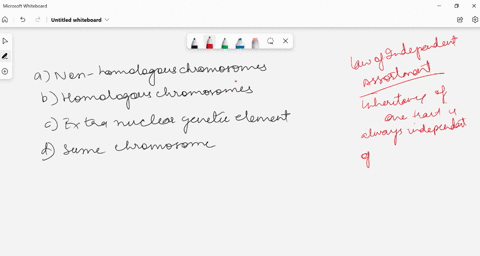 Microsoft Whiteboard
Untitled whiteboard
a) Non-homologous chromosomes
b) Homologous chromosomes
c) Extra nuclear genetic element
d) Same chromosome
Law of Independent
Assortment
Inheritance of
one trait is
always independent
of